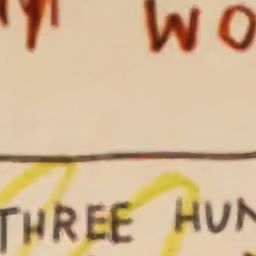 WO
THREE HUN